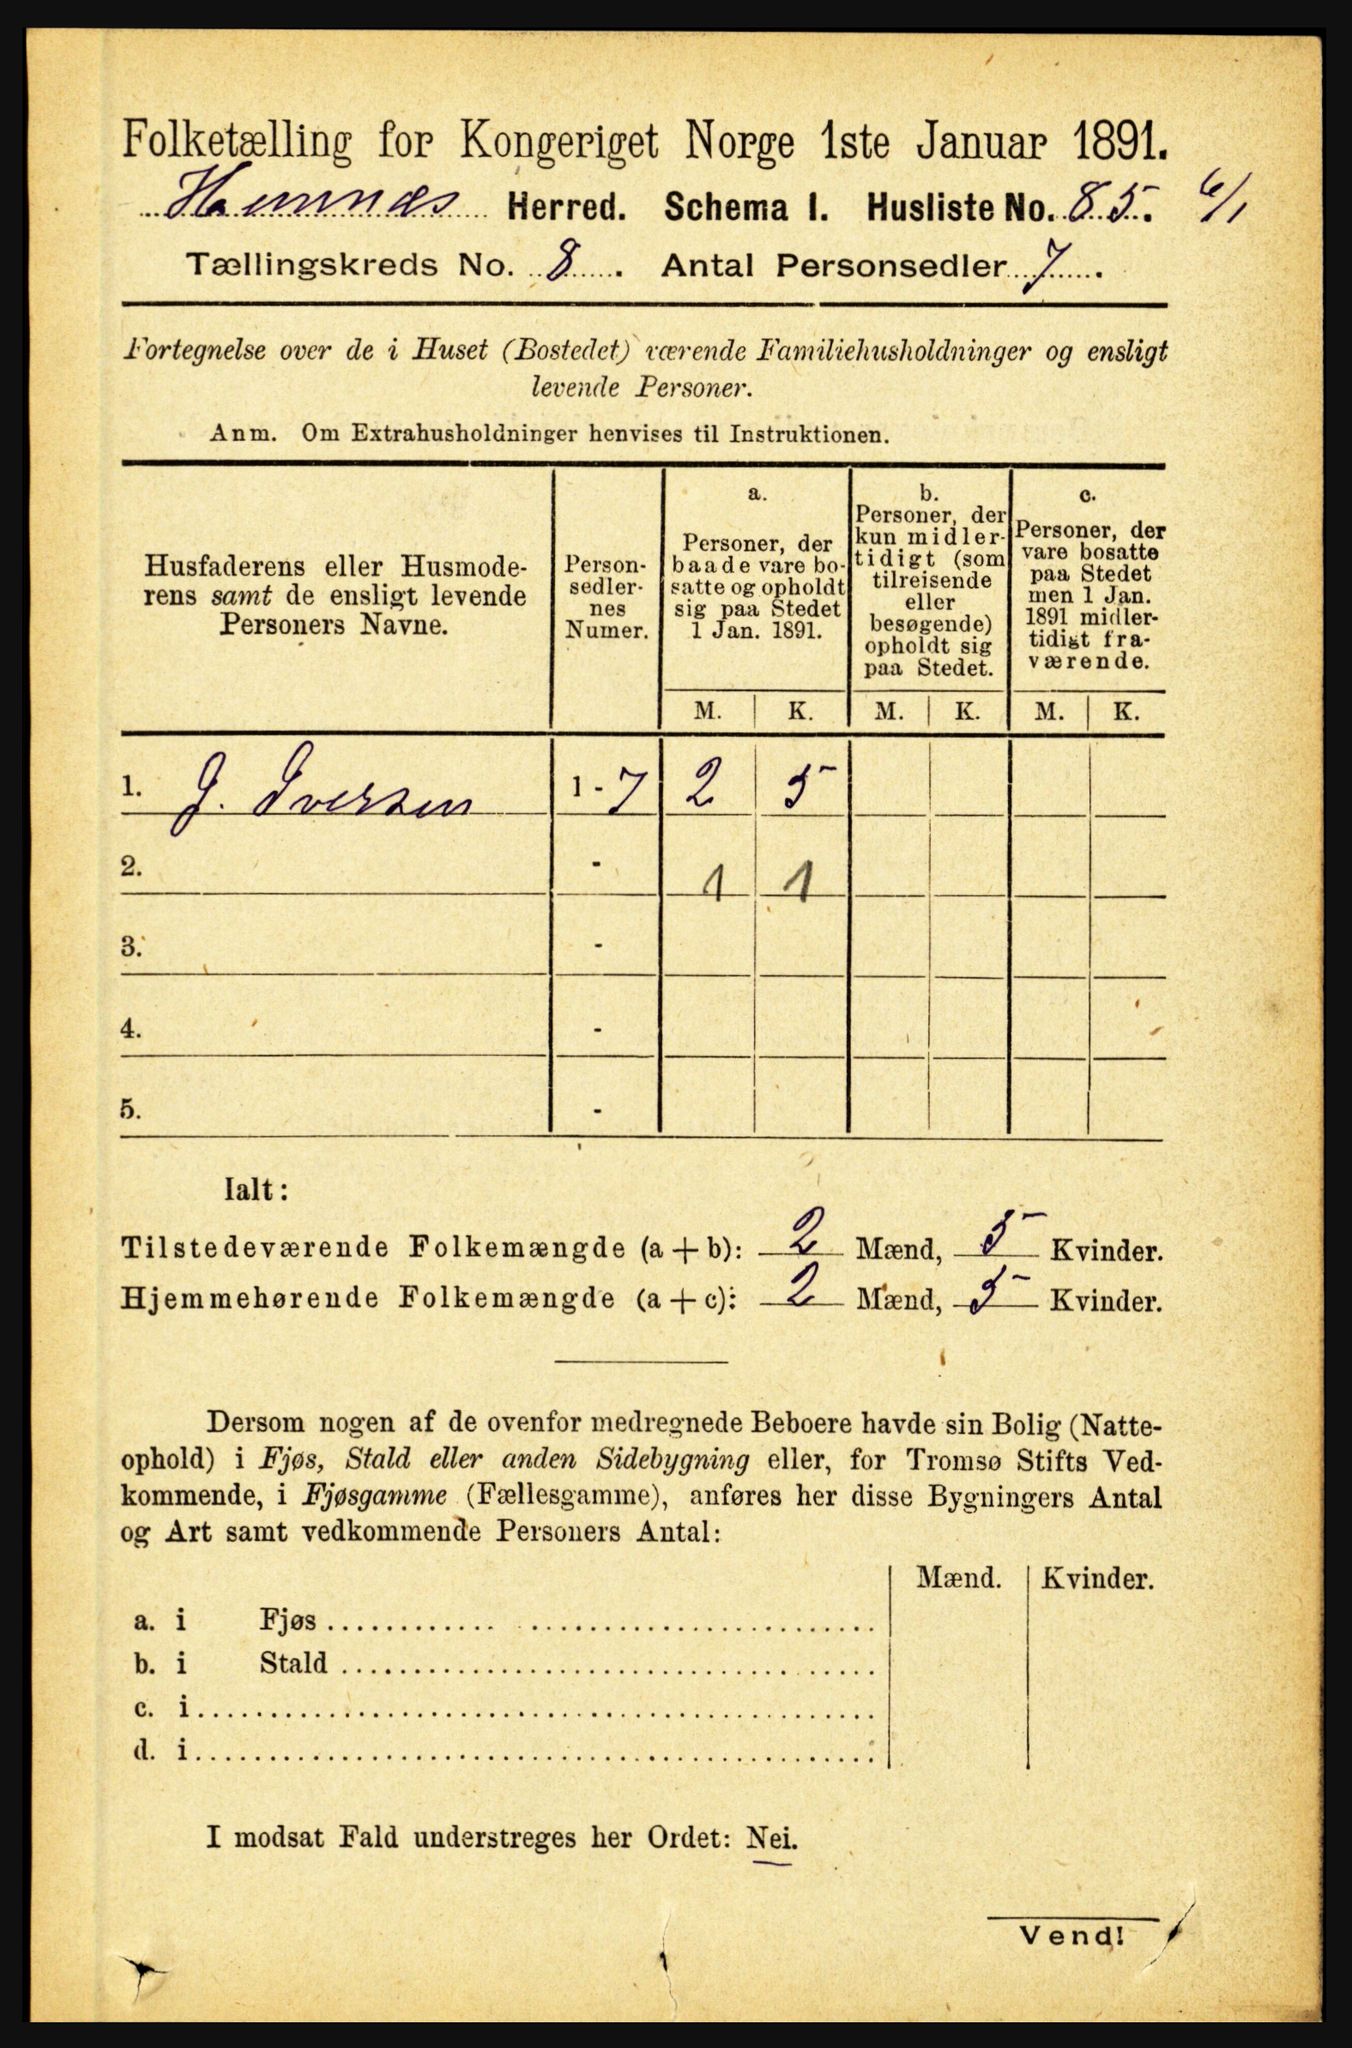 Folketælling for Kongeriget Norge 1ste Januar 1891.
Hemnæs Herred. Schema I. Husliste No. 85. 6/1
Tællingskreds No. 8. Antal Personsedler 7.
Fortegnelse over de i Huset (Bostedet) værende Familiehusholdninger og ensligt
levende Personer.
Anm. Om Extrahusholdninger henvises til Instruktionen.
Husfaderens eller Husmode-
rens samt de ensligt levende
Personers Navne.
Person-
sedler-
nes
Numer.
a.
Personer, der
baade vare bo-
satte og opholdt
sig paa Stedet
1 Jan. 1891.
b.
Personer, der
kun midler-
tidigt (som
tilreisende
eller
besøgende)
opholdt sig
paa Stedet.
c.
Personer, der
vare bosatte
paa Stedet
men 1 Jan.
1891 midler-
tidigt fra-
værende.
M. K. M. K. M. K.
1. J. Iversen 1 - 7 2 5
2. - 1 1
3. -
4. -
5. -
Ialt:
Tilstedeværende Folkemængde (a + b): 2 Mænd, 5 Kvinder.
Hjemmehørende Folkemængde (a + c): 2 Mænd, 5 Kvinder.
Dersom nogen af de ovenfor medregnede Beboere havde sin Bolig (Natte-
ophold) i Fjøs, Stald eller anden Sidebygning eller, for Tromsø Stifts Ved-
kommende, i Fjøsgamme (Fællesgamme), anføres her disse Bygningers Antal
og Art samt vedkommende Personers Antal:
Mænd. Kvinder.
a. i Fjøs
b. i Stald
c. i
d. i
I modsat Fald understreges her Ordet: Nei.
Vend!